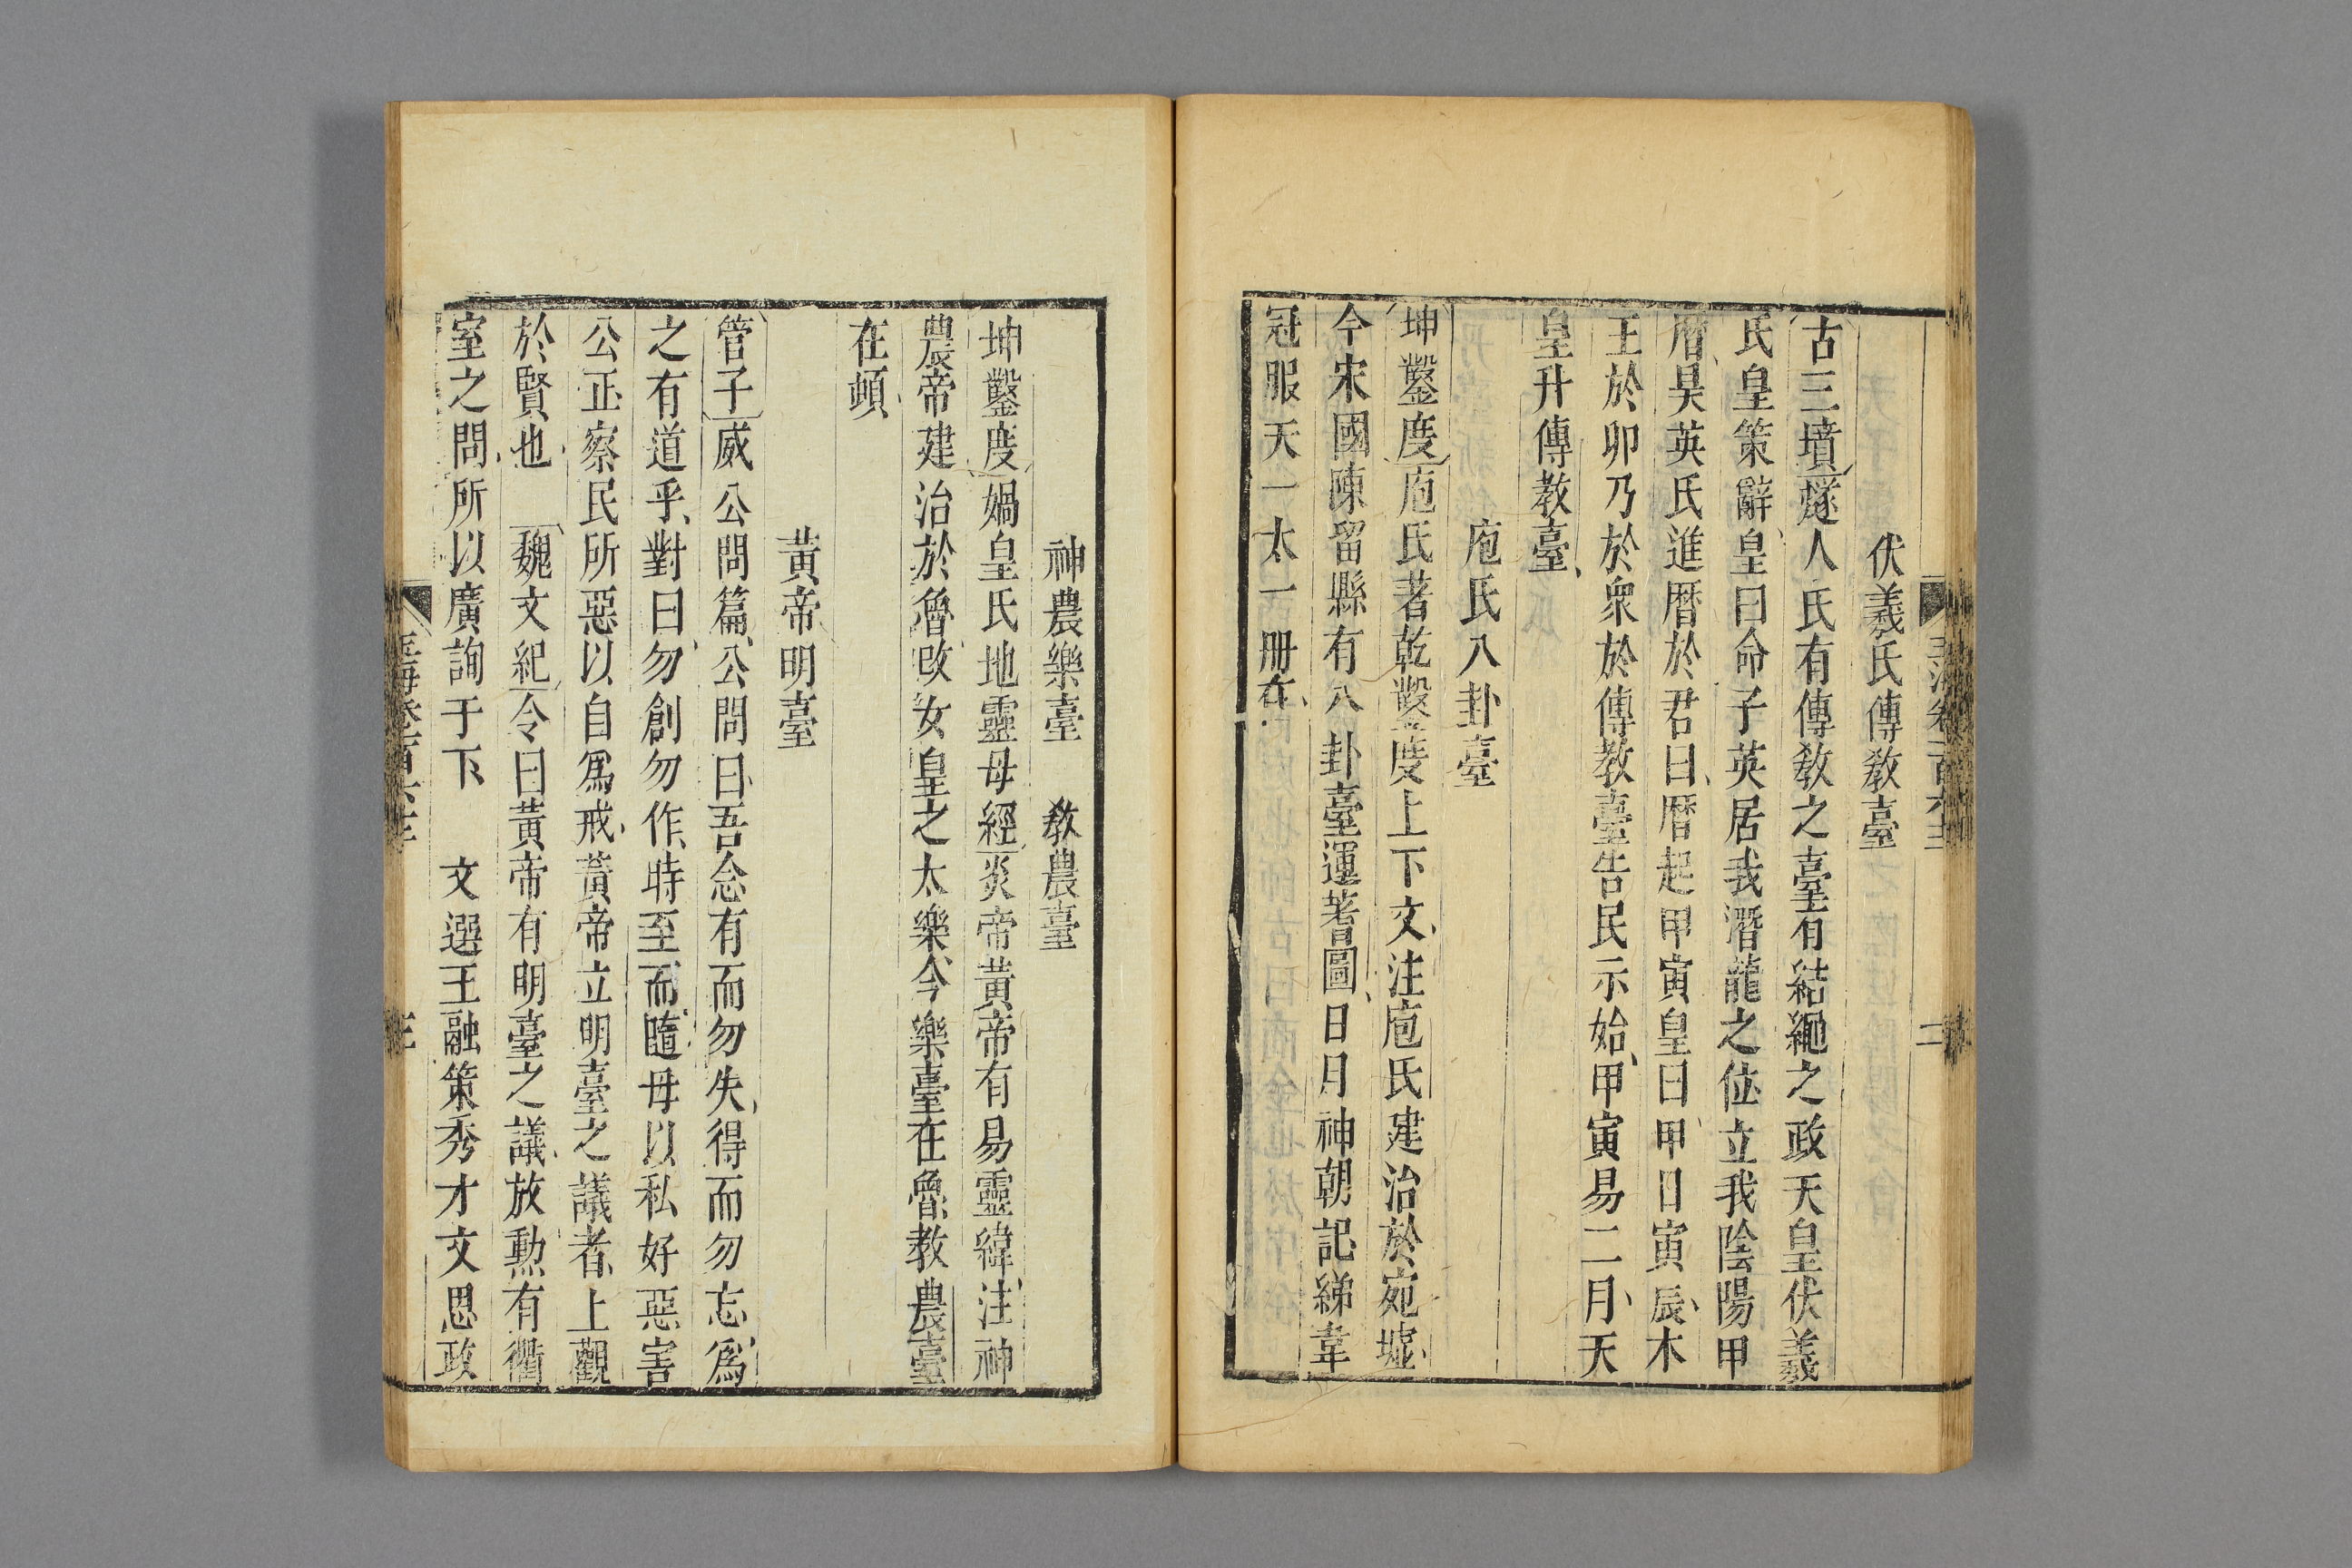 伏羲氏傳敎臺
古三墳燧人氏有傳敎之臺有結繩之政天皇伏羲
氏皇策辭皇曰命子英居我潛龍之位立我陰陽甲
曆昊英氏進曆於君曰曆起甲寅皇曰甲日寅辰木
王於卯乃於衆於傳敎臺告民示始甲寅易二月天
皇升傳敎臺
庖氏八卦臺
坤鑿度庖氏著乾鑿度上下文注庖氏建治於宛墟
今宋國陳留縣有八卦臺運蓍圖日月神朝記綈韋
冠服天一太一册在
神農樂臺　敎農臺
坤鑿度媧皇氏地靈母經炎帝黃帝有易靈緯注神
農帝建治於魯改女皇之太樂今樂臺在魯敎農臺
在頓
黃帝明臺
管子威公問篇公問曰吾念有而勿失得而勿忘爲
之有道乎對曰勿創勿作時至而隨毋以私好惡害
公正察民所惡以自爲戒黃帝立明臺之議者上觀
於賢也　魏文紀令曰黃帝有明臺之議放勲有衢
室之問所以廣詢于下　文選王融策秀才文思政